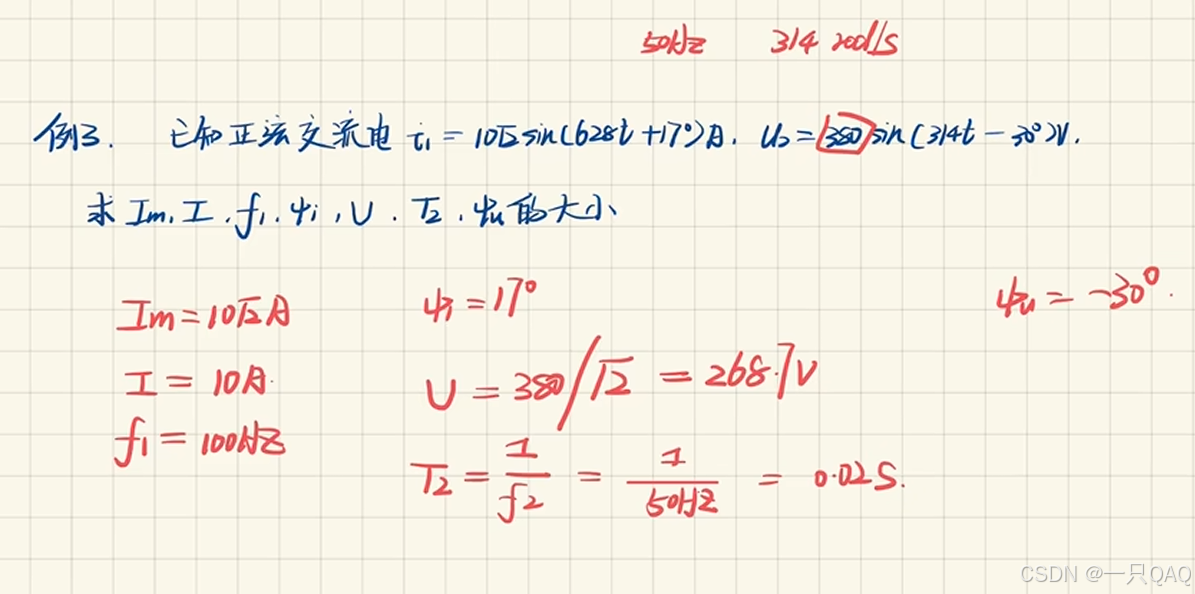 50HZ 314 rad/s
例3. 已知正弦交流电 i₁ = 10√2 sin(628t +17°)A. U₂ = 380 sin(314t - 30°)V.
求 Im, I, f₁, ψi, U, T₂, ψu 的大小
Im = 10√2 A
I = 10A.
f₁ = 100HZ
ψi = 17°
U = 380/√2 = 268.7V
T₂ = 1/f₂ = 1/50HZ = 0.02S.
ψu = -30°.
CSDN @一只QAQ